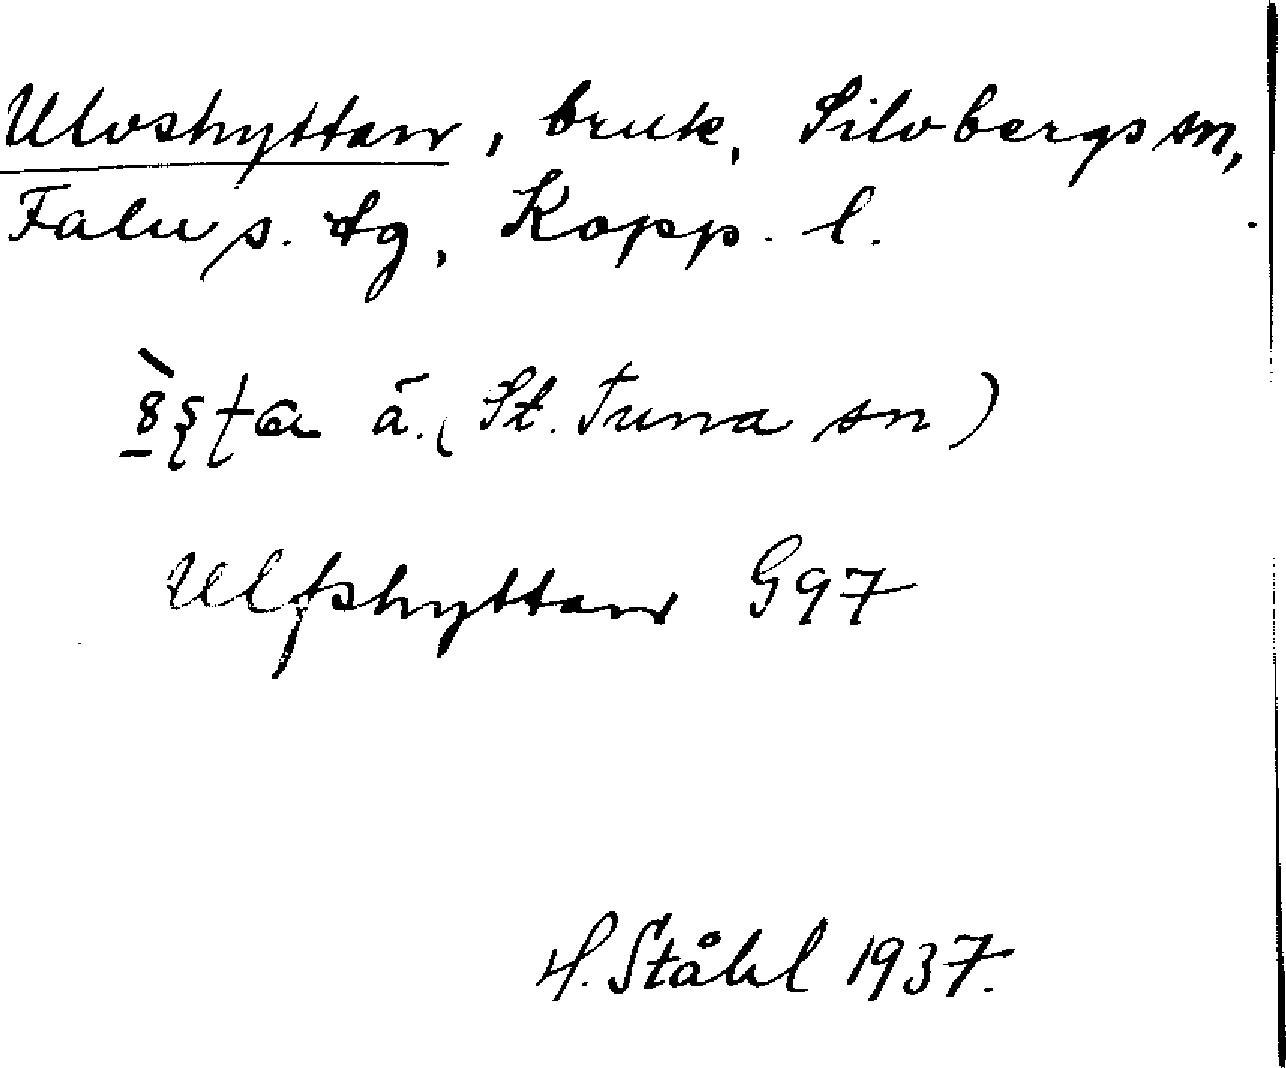 Ulvshyttan, bruk, Silvbergs sn,
Falu s. tg, Kopp. l.
ā. (St. Tuna sn)
Ulfshyttan G97
H. Ståhl 1937.